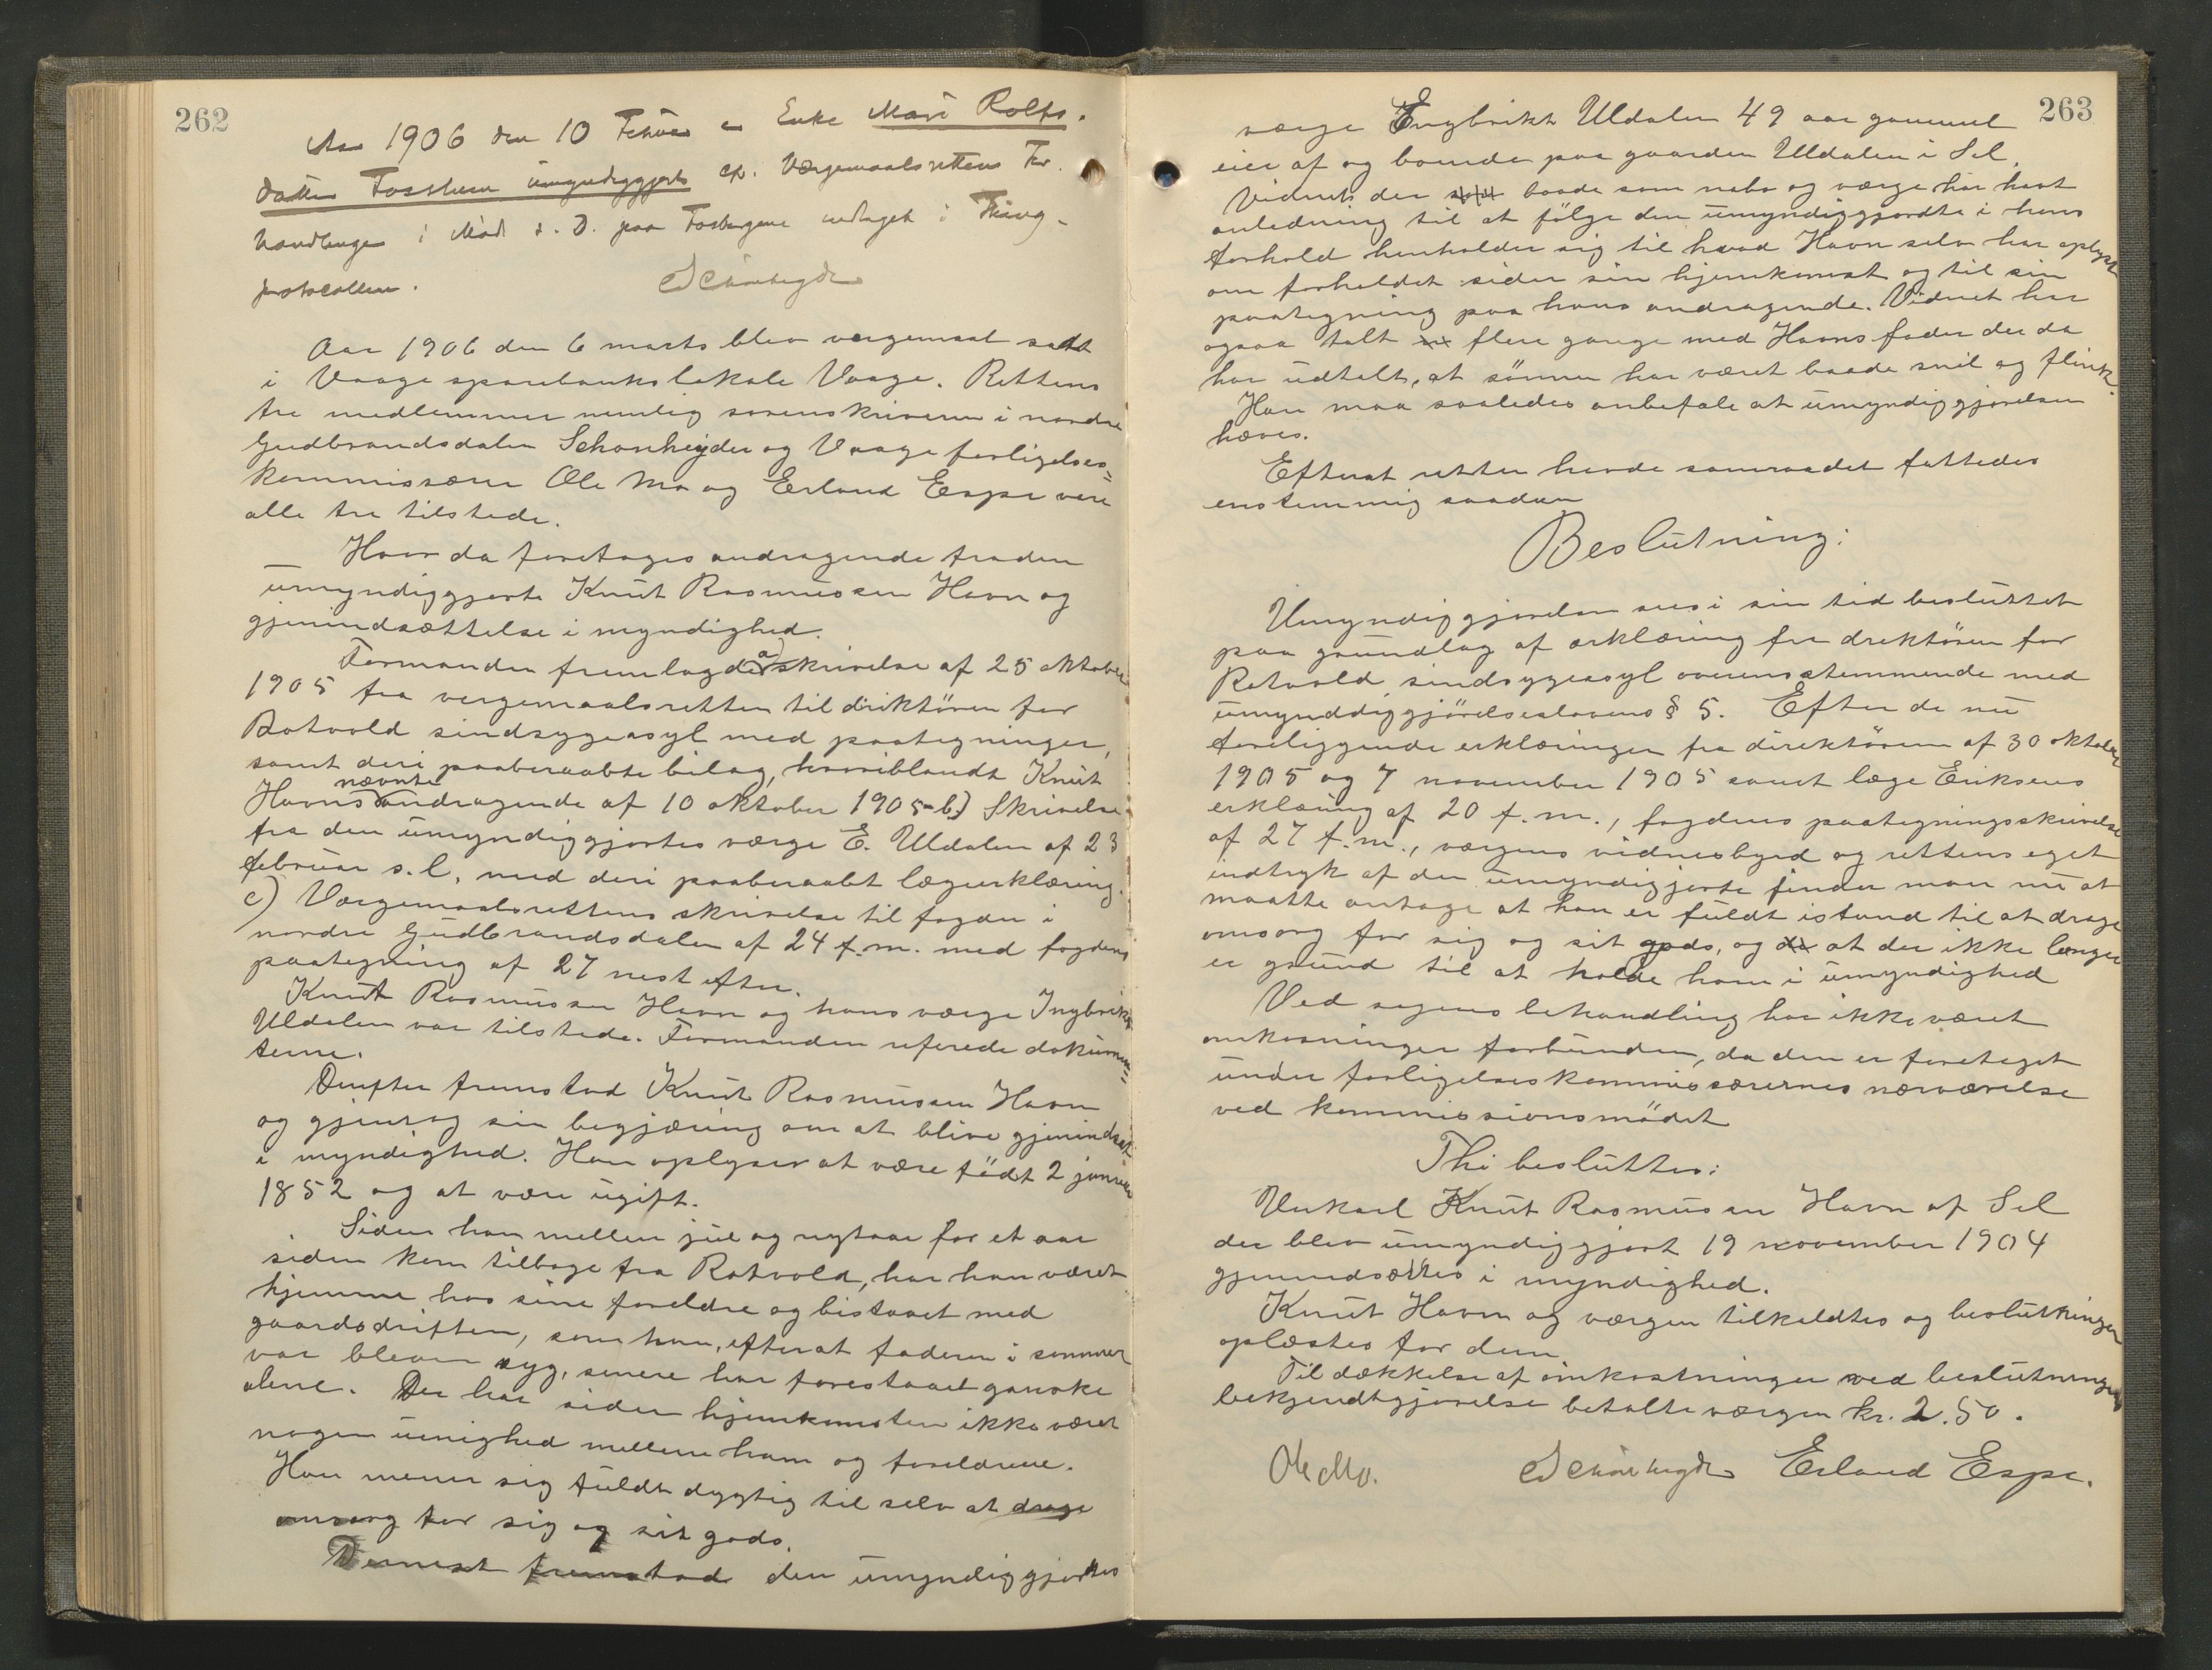 262
Aar 1906 den 10 Februar Enke Mari Rolfs.
datter Fosslien umyndiggjort cf. Værgemaalsrettens For.
handlinger i Mød s. D. paa Fosbergene indtaget i Thing-
protocollen.
Schønheyder
Aar 1906 den 6 marts blev vergemaal satt
i Vaage sparebankslokale Vaage. Rettens
tre medlemmer nemlig sorenskriveren i nordre
Gudbrandsdalen Schonheyder og Vaage forligelses=
kommissærer Ole Mo og Erland Espe vare
alle tre tilstede.
Hvor da foretoges andragende fra den
umyndiggjorte Knut Rasmussen Havn og
gjenindsættelse i myndighed.
Formanden fremlagde a) skrivelse af 25 oktober
1905 fra vergemaalsretten til direktören for
Rotvold sindsygeasyl med paategninger,
samt deri paaberaabte bilag, hvoriblandt Knut
Havns nævnte andragende af 10 oktober 1905 - b) Skrivelse
fra den umyndiggjortes værge E. Uldalen af 23
februar s. l. med deri paaberaabt lægeerklæring.
c) Værgemaalsrettens skrivelse til fogden i
nordre Gudbrandsdalen af 24 f. m. med fogdens
paategning af 27 nest efter.
Knut Rasmussen Havn og hans værge Ingbrikt
Uldalen var tilstede. Formanden referede dokumen=
terne.
Derefter fremstod Knut Rasmussen Havn
og gjentog sin begjæring om at blive gjenindsat
i myndighed. Han oplyser at være födt 2 januar
1852 og at være ugift.
Siden han mellem jul og nytaar for et aar
siden kom tilbage fra Rotvold, har han været
hjemme hos sine foreldre og bistaaet med
gaardsdriften, som han, efterat faderen i sommer
var bleven syg, senere har forestaaet ganske
alene. Der har siden hjemkomsten ikke været
nogen uenighed mellem ham og foreldrene.
Han mener sig fuldt dygtig til selv at drage
omsorg for sig og sit gods.
Dernest fremstod den umyndiggjortes
263
værge Engbrikt Uldalen 49 aar gammel
eier af og boende paa gaarden Uldalen i Sel.
Vidnet der som baade som nabo og værge har havt
anledning til at følge den umyndiggjordte i hans
forhold henholder sig til hvad Havn selv har oplyst
om forholdet siden sin hjemkomst og til sin
paategning paa hans andragende. Vidnet har
ogsaa talt flere gange med Havns fader der da
har udtalt, at sönnen har været baade snil og flink.
Han maa saaledes anbefale at umyndiggjørelsen
hæves.
Efterat retten havde samraadet fattedes
enstemmig saadan
Beslutning:
Umyndiggjørelsen sees i sin tid besluttet
paa grundlag af erklæring fra drektören for
Rotvold sindsygeasyl overensstemmende med
umynddiggjörelseslovens § 5. Efter de nu
foreliggende erklæringer fra direktören af 30 oktober
1905 og 7 november 1905 samt læge Eriksens
erklæring af 20 f. m., fogdens paategningsskrivelse
af 27 f. m., værgens vidnesbyrd og rettens eget
indtryk af den umyndigjorte finder man nu at
maatte antage at han er fuldt istand til at drage
omsorg for sig og sit gods, og at der ikke længer
er grund til at holde ham i umyndighed
Ved sagens behandling har ikke været
omkosninger forbunden, da den er foretaget
under forligelseskommissærernes nærværelse
ved kommissionsmödet
Thi besluttes:
Unkarl Knut Rasmussen Havn af Sel
der blev umyndiggjort 19 november 1904
gjenindsættes i myndighed.
Knut Havn og værgen tilkaldtes og beslutningen
oplæstes for dem
Til dækkelse af omkostninger ved beslutningens
bekjendtgjørelse betalte værgen kr. 2.50.
Ole Mo. Schønheyder Erland Espe.